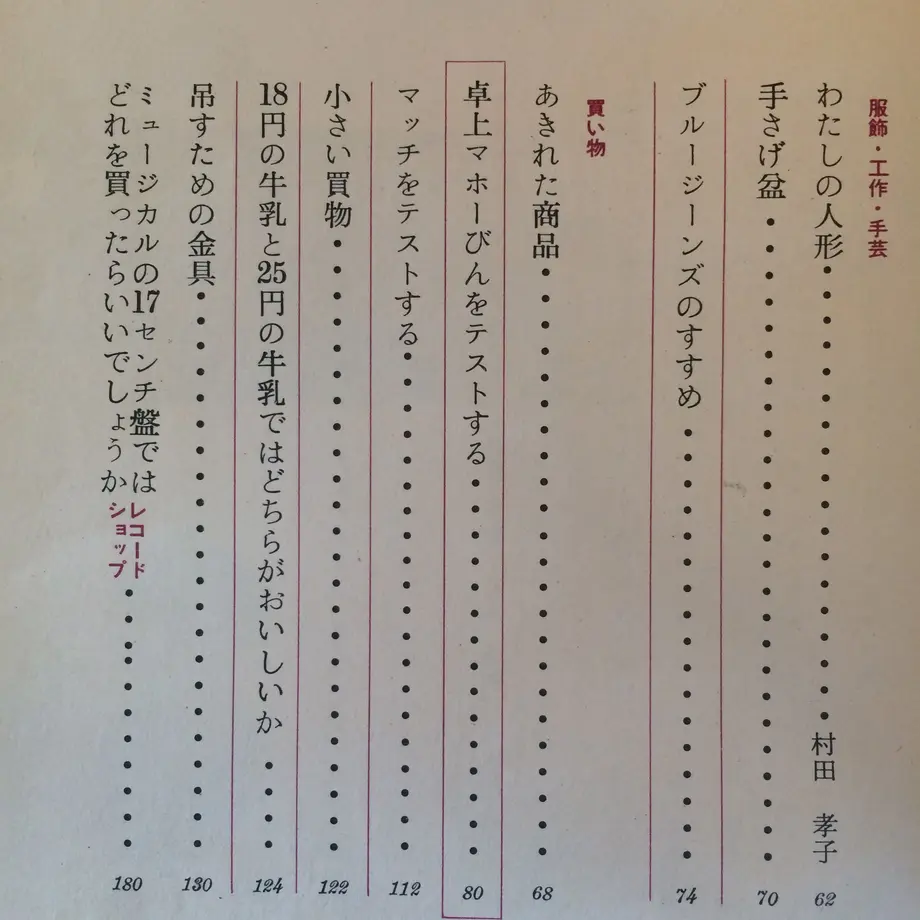 服飾・工作・手芸
わたしの人形・・・・・・・・・・・・・・・・・・村田 孝子 62
手さげ盆・・・・・・・・・・・・・・・・・・・・・・・・・ 70
ブルージーンズのすすめ・・・・・・・・・・・・・・・・・ 74
買い物
あきれた商品・・・・・・・・・・・・・・・・・・・・・・ 68
卓上マホーびんをテストする・・・・・・・・・・・・・・・ 80
マッチをテストする・・・・・・・・・・・・・・・・・・・ 112
小さい買物・・・・・・・・・・・・・・・・・・・・・・・・ 122
18円の牛乳と25円の牛乳ではどちらがおいしいか・・・・ 124
吊すための金具・・・・・・・・・・・・・・・・・・・・・・ 130
ミュージカルの17センチ盤では
どれを買ったらいいでしょうか
レコード
ショップ・・・・・・・・・・・ 180